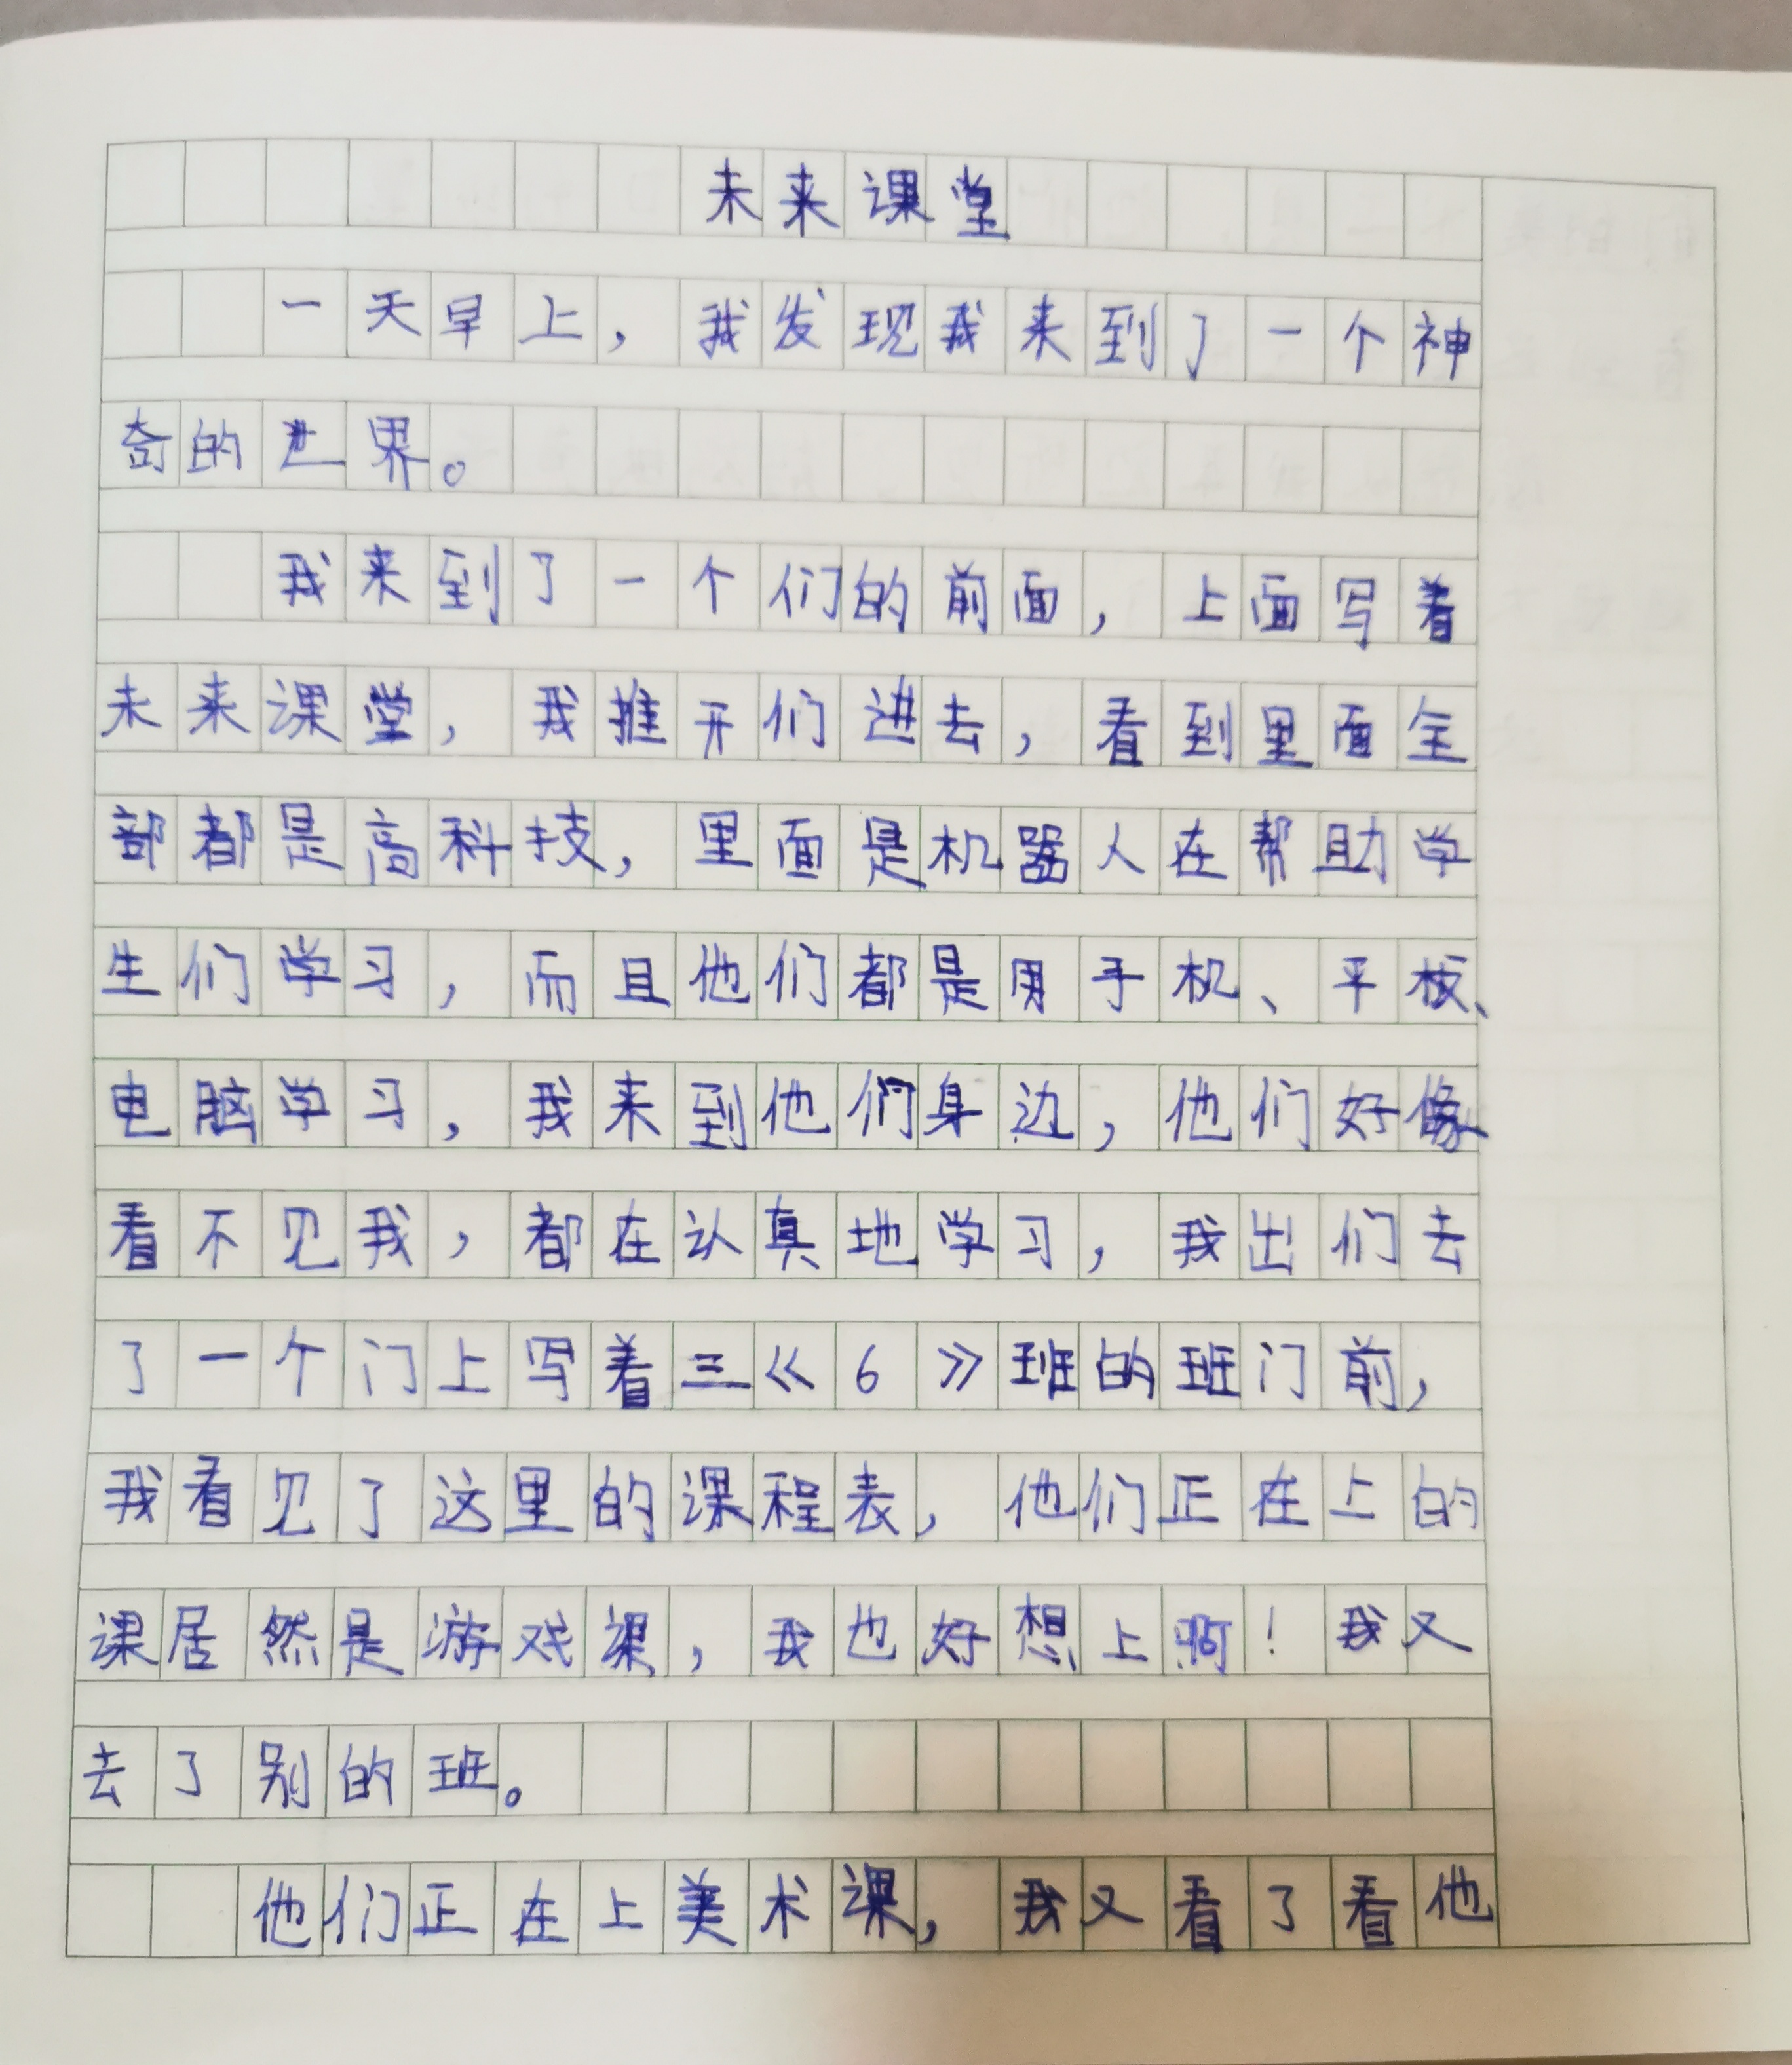 未来课堂
一天早上，我发现我来到了一个神
奇的世界。
我来到了一个们的前面，上面写着
未来课堂，我推开们进去，看到里面全
部都是高科技，里面是机器人在帮助学
生们学习，而且他们都是用手机、平板、
电脑学习，我来到他们身边，他们好像
看不见我，都在认真地学习，我出们去
了一个门上写着三《6》班的班门前，
我看见了这里的课程表，他们正在上的
课居然是游戏课，我也好想上啊！我又
去了别的班。
他们正在上美术课，我又看了看他